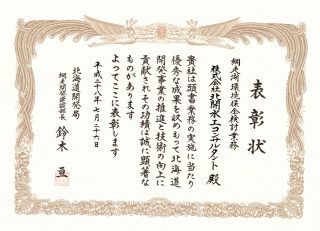 表彰状
網走湖環境保全検討業務
株式会社北開水工コンサルタント 殿
貴社は頭書業務の実施に当たり
優秀な成果を収めもって北海道
開発事業の推進と技術の向上に
貢献されその功績は誠に顕著な
ものがあります
よってここに表彰します
平成二十八年七月二十六日
北海道開発局
網走開発建設部長 鈴木 亘